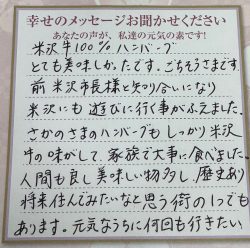 幸せのメッセージお聞かせください
あなたの声が、私達の元気の素です!
米沢牛100%ハンバーグ
とても美味しかったです。ごちそうさまです
前米沢市長様と知り合いになり
米沢にも遊びに行く事がふえました。
さかのさまのハンバーグもしっかり米沢
牛の味がして、家族で大事に食べました。
人間も良し美味しい物多し、歴史あり
将来住んでみたいなと思う街の1つでも
あります。元気なうちに何回も行きたい